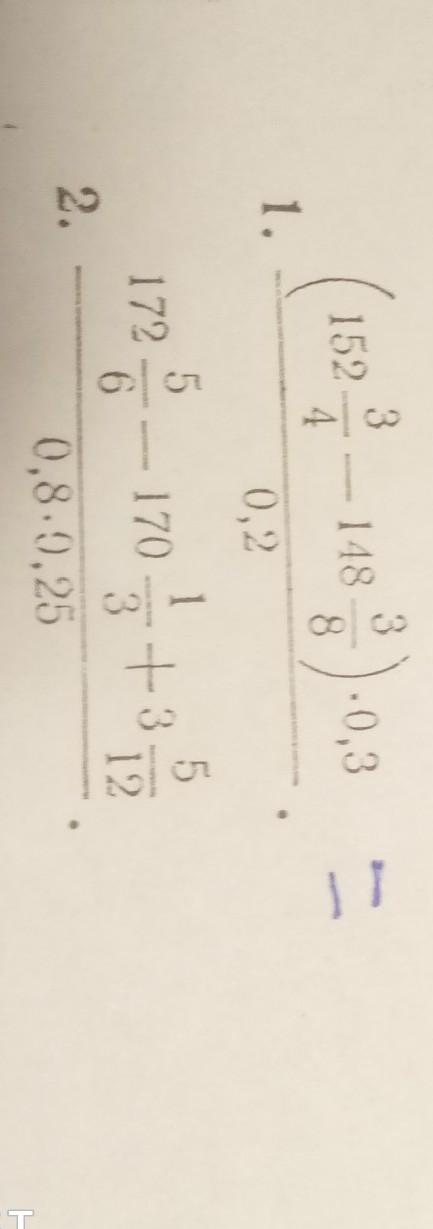 1. (152 3/4 − 148 3/8) · 0,3 =
0,2 .
2. 172 5/6 − 170 1/3 + 3 5/12
0,8·0,25 .
T